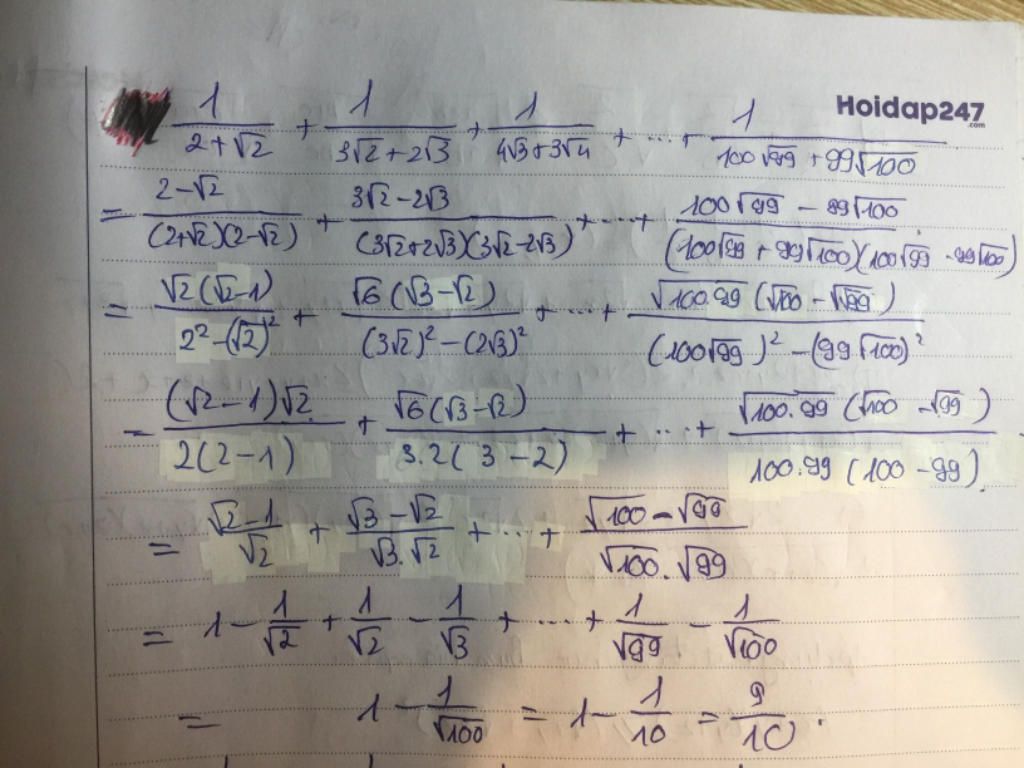 Hoidap247
.com
1/(2+√2) + 1/(3√2+2√3) + 1/(4√3+3√4) + ... + 1/(100√99+99√100)
= (2-√2)/((2+√2)(2-√2)) + (3√2-2√3)/((3√2+2√3)(3√2-2√3)) + ... + (100√99-99√100)/((100√99+99√100)(100√99-99√100))
= √2(√2-1)/(2²-(√2)²) + √6(√3-√2)/((3√2)²-(2√3)²) + ... + √100.99(√100-√99)/((100√99)²-(99√100)²)
= (√2-1)√2/(2(2-1)) + √6(√3-√2)/(3.2(3-2)) + ... + √100.99(√100-√99)/(100.99(100-99)).
= (√2-1)/√2 + (√3-√2)/(√3.√2) + ... + (√100-√99)/(√100.√99)
= 1 - 1/√2 + 1/√2 - 1/√3 + ... + 1/√99 - 1/√100
= 1 - 1/√100 = 1 - 1/10 = 9/10.